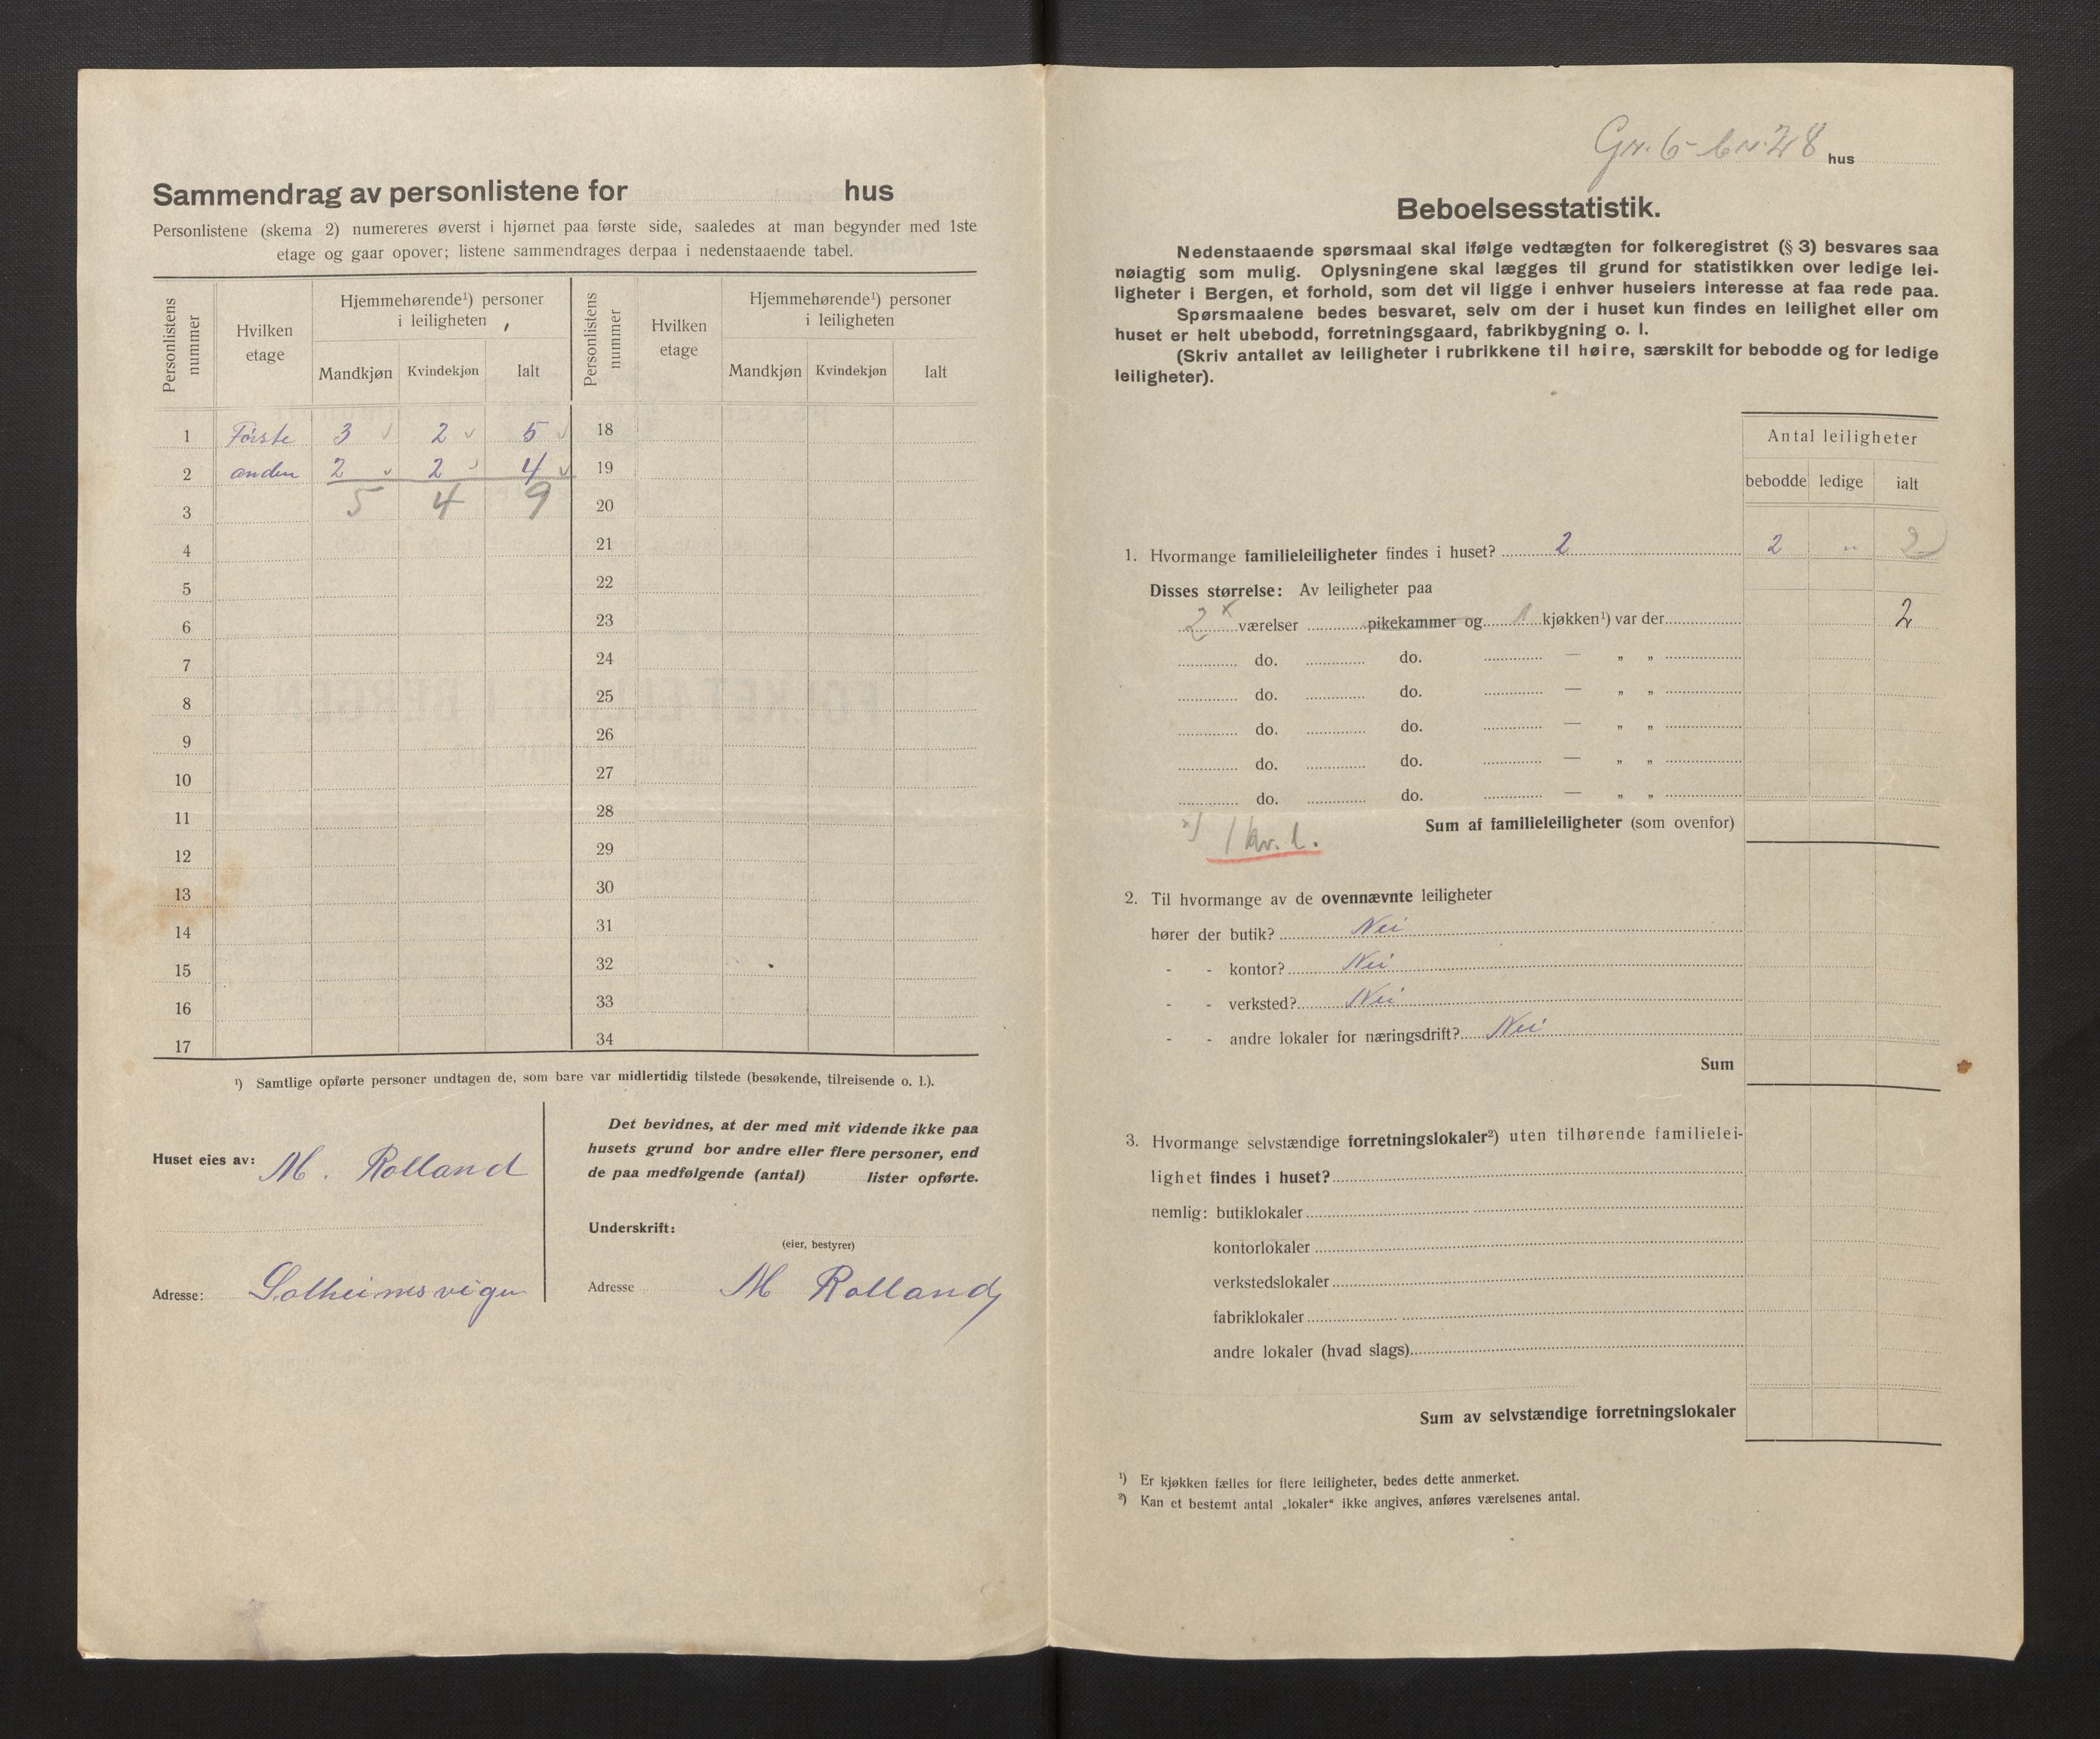 Sammendrag av personlistene for hus
Personlistene (skema 2) numereres øverst i hjørnet paa første side, saaledes at man begynder med 1ste
etage og gaar opover; listene sammendrages derpaa i nedenstaaende tabel.
Personlistens nummer
Hvilken etage
Hjemmehørende¹) personer i leiligheten
Mandkjøn Kvindekjøn Ialt
Personlistens nummer
Hvilken etage
Hjemmehørende¹) personer i leiligheten
Mandkjøn Kvindekjøn Ialt
1 Første 3 2 5 18
2 anden 2 2 4 19
3 5 4 9 20
4 21
5 22
6 23
7 24
8 25
9 26
10 27
11 28
12 29
13 30
14 31
15 32
16 33
17 34
¹) Samtlige opførte personer undtagen de, som bare var midlertidig tilstede (besøkende, tilreisende o. l.).
Huset eies av: M. Rolland
Adresse: Solheimsvigen
Det bevidnes, at der med mit vidende ikke paa
husets grund bor andre eller flere personer, end
de paa medfølgende (antal) lister opførte.
Underskrift:
(eier, bestyrer)
Adresse M Rolland
Gn. 6 - bn. 28 hus
Beboelsesstatistik.
Nedenstaaende spørsmaal skal ifølge vedtægten for folkeregistret (§ 3) besvares saa
nøiagtig som mulig. Oplysningene skal lægges til grund for statistikken over ledige lei-
ligheter i Bergen, et forhold, som det vil ligge i enhver huseiers interesse at faa rede paa.
Spørsmaalene bedes besvaret, selv om der i huset kun findes en leilighet eller om
huset er helt ubebodd, forretningsgaard, fabrikbygning o. l.
(Skriv antallet av leiligheter i rubrikkene til høire, særskilt for bebodde og for ledige
leiligheter).
Antal leiligheter
bebodde ledige ialt
1. Hvormange familieleiligheter findes i huset? 2 2 „ 2
Disses størrelse: Av leiligheter paa
2 x værelser pikekammer og 1 kjøkken¹) var der 2
do. do. — „ „
do. do. — „ „
do. do. — „ „
do. do. — „ „
do. do. — „ „
Sum af familieleiligheter (som ovenfor)
x) 1 kv. l.
2. Til hvormange av de ovennævnte leiligheter
hører der butik? Nei
- - kontor? Nei
- - verksted? Nei
- - andre lokaler for næringsdrift? Nei
Sum
3. Hvormange selvstændige forretningslokaler²) uten tilhørende familielei-
lighet findes i huset?
nemlig: butiklokaler
kontorlokaler
verkstedslokaler
fabriklokaler
andre lokaler (hvad slags)
Sum av selvstændige forretningslokaler
¹) Er kjøkken fælles for flere leiligheter, bedes dette anmerket.
²) Kan et bestemt antal „lokaler“ ikke angives, anføres værelsenes antal.